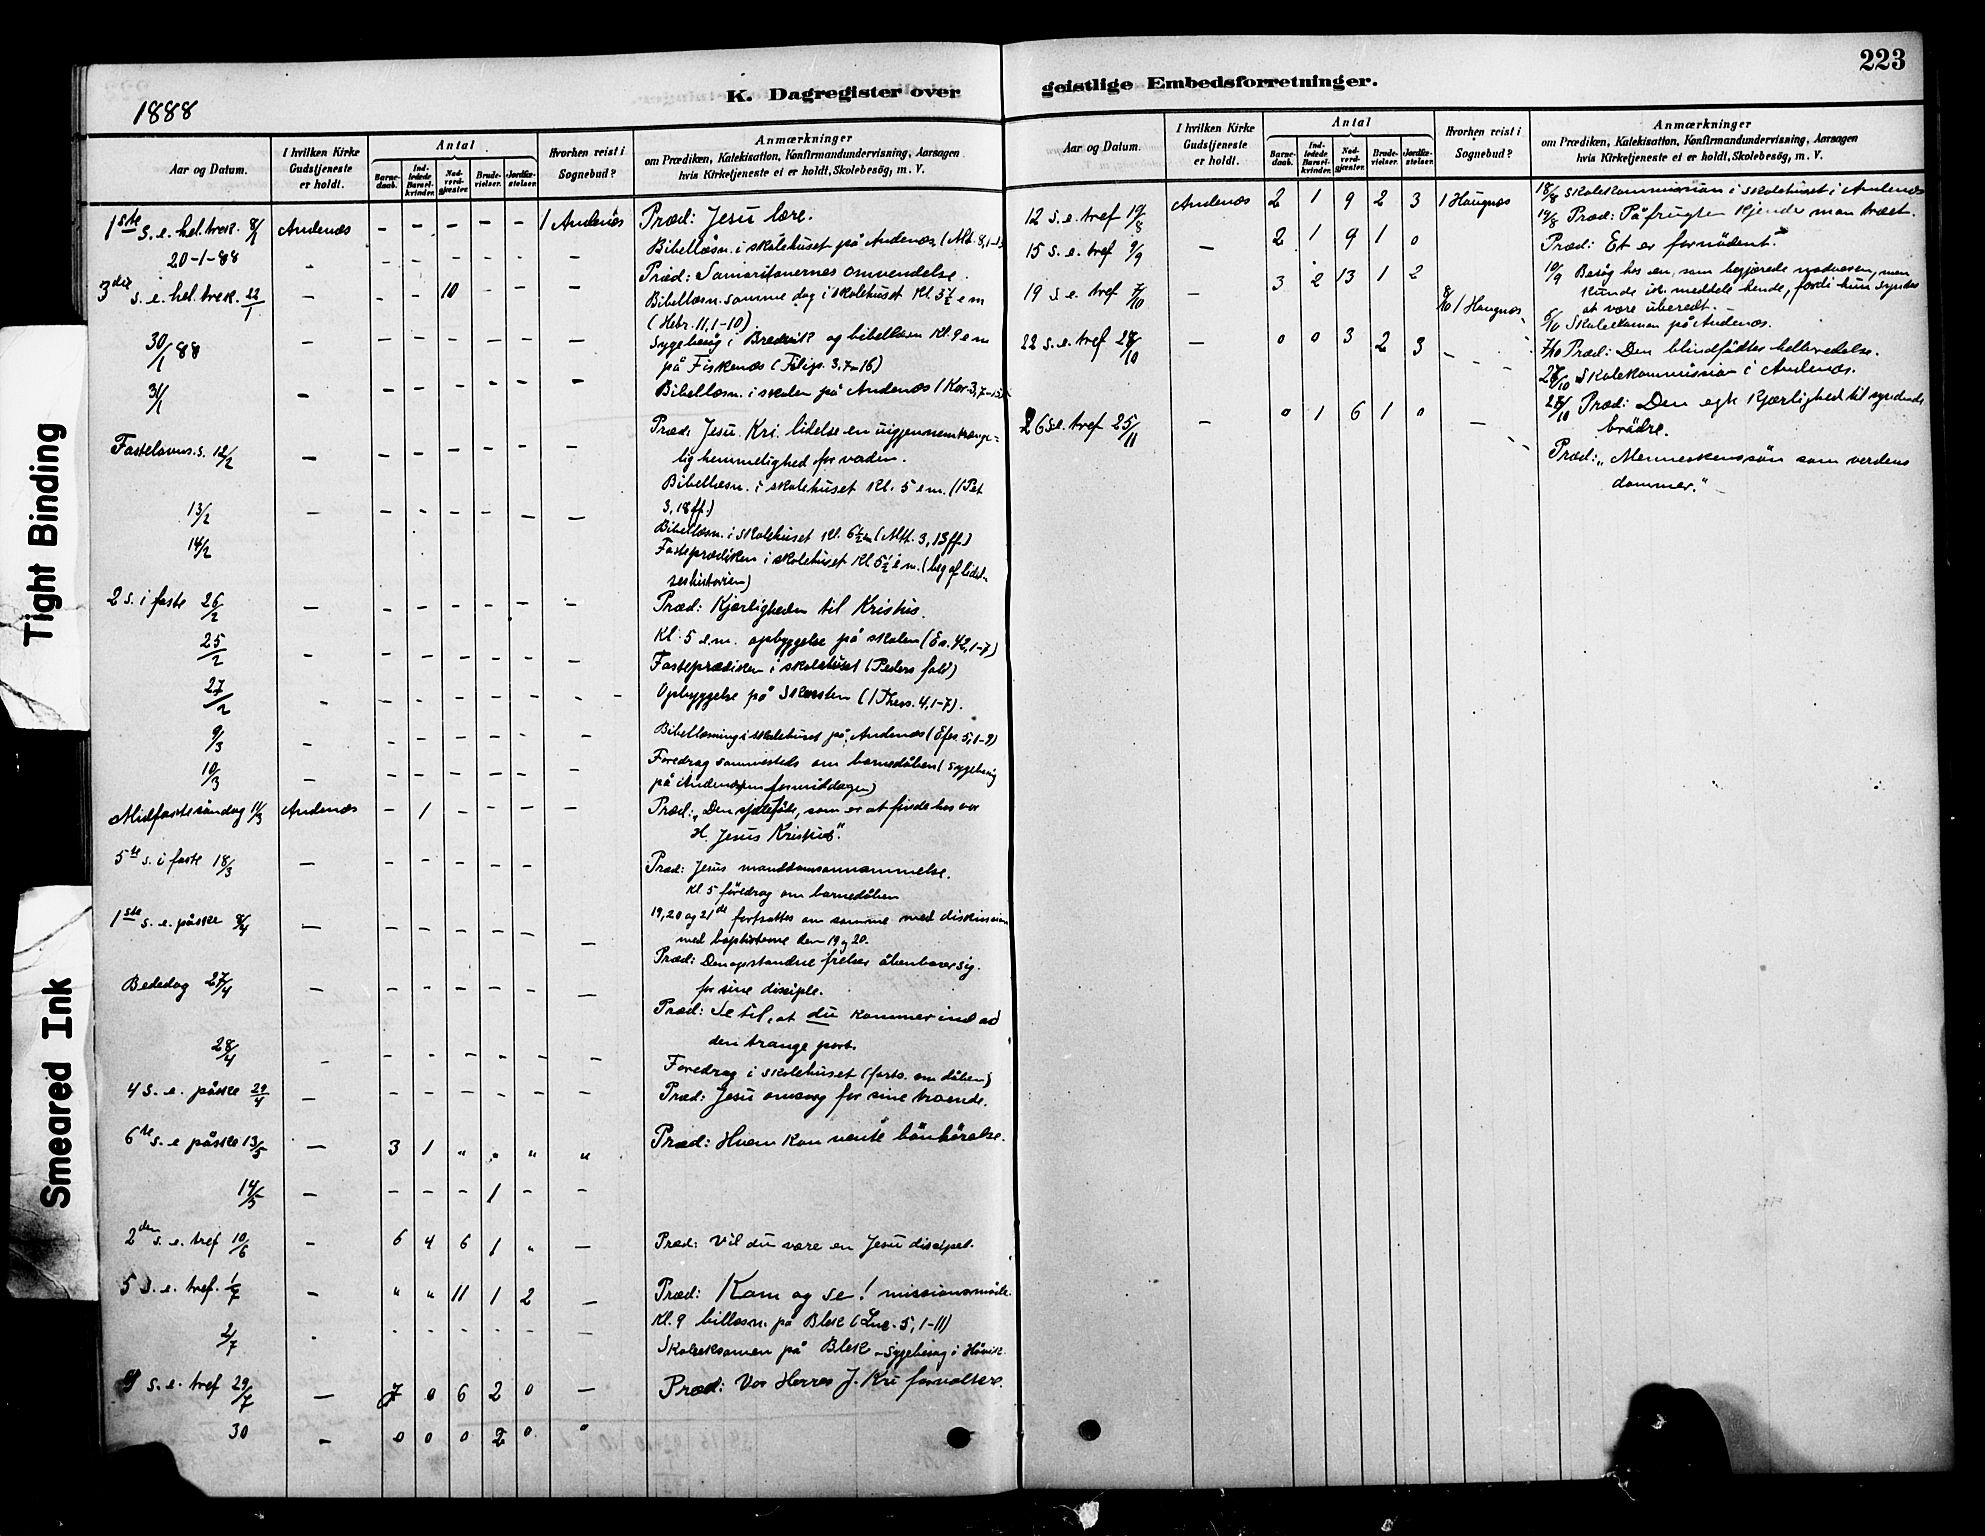 223
1888
K. Dagregister over
geistlige Embedsforretninger.
Aar og Datum.
I hvilken Kirke Gudstjeneste er holdt.
Antal
Barnedaab.
Indledede Barselkvinder.
Nadverdgjester.
Brudevielser.
Jordfæstelser.
Hvorhen reist i Sognebud?
Anmærkninger
om Prædiken, Katekisation, Konfirmandundervisning, Aarsagen
hvis Kirketjeneste ei er holdt, Skolebesög, m. V.
1ste s. e. hel. trek. 8/1 Andenæs - - - - - 1 Andenæs Præd: Jesu lære.
20-1-88 - - - - - - Bibellæsn. i skolehuset på Andenæs
3die s. e. hel. trek. 22/1 - - - 10 - - - Præd: Samaritanernes omvendelse.
Bibellæsn. samme dag i skolehuset kl 5½ em
(Hebr. 11, 1-10)
30/1 88 - - - - - - - Sygebesög i Bredvik og bibellæsn kl. 9 em
på Fiskenæs (Filip. 3, 7-16)
31/1 - - - - - - - Bibellæsn. i skolen på Andenæs
Fastelavns. s. 12/2 - - - - - - - Præd: Jesu Kri. lidelse en uigjennemtrænge=
lig hemmelighed for verden.
Bibellæsn. i skolehuset kl. 5 em. (1 Pet
3, 18 ff.)
13/2 - - - - - - - Bibellæsn. i skolehuset kl. 6½ em (Mtt. 3, 13 ff.)
14/2 Fasteprædiken i skolehuset kl 5½ em. (beg af lidel-
seshistorien)
2 s. i faste 26/2 - - - - - - - Præd: Kjærligheden til Kristus.
25/2 - - - - - - - Kl. 5 em. opbyggelse på skolen (Es. 42, 1-7)
Fasteprædiken i skolehuset (Peders fald)
27/2 - - - - - - - Opbyggelse på Skarsten (1 Thess. 4, 1-7).
9/3 - - - - - - - Bibellæsning i skolehuset på Andenæs (Efes. 5, 1-9)
10/3 - - - - - - - Foredrag sammesteds om barnedåben (Sygebesög
på Andenæs om formiddagen)
Midfastesöndag 11/3 Andenæs - 1 - - - - Præd: „Den sjæleföde, som er at finde hos vor
H. Jesus Kristus".
5te s. i faste 18/3 - - - - - - - Præd: Jesus manddomsannammelse.
kl. 5 föredrag om barnedåben
19, 20 og 21de fortsattes om samme med diskussion
med baptisterne den 19 og 20.
1ste s. e. påske 8/4 - - - - - - - Præd: Den opstandne frelser åbenbarer sig
for sine disciple.
Bededag 27/4 - - - - - - - Præd: Se til, at du kommer ind ad
den trange port.
28/4 - - - - - - - Foredrag i skolehuset (forts. om dåben)
4 s. e. påske 29/4 - - - - - - - Præd: Jesu omsorg for sine troende.
6te s. e påske 13/5 - 3 1 „ „ „ „ Præd: Hvem kan vente bönhörelse.
14/5 - - - - 1 - -
2den s. e. tref 10/6 - 6 4 6 1 „ - Præd: Vil du være en Jesu discipel.
5 s. e. tref. 1/7 - „ „ 11 1 2 - Præd: Kom og se! missionsmöde.
Kl. 9 billæsn. på Bleik (Luc. 5, 1-11)
2/7 - - - - - - - Skoleeksamen på Bleik - Sygebesög i Håvik.
9 s. e. tref 29/7 - 7 0 6 2 0 - Præd: Vor Herres J. Kri forvaltere.
30 - 0 0 0 2 0 „
Aar og Datum.
I hvilken Kirke Gudstjeneste er holdt.
Antal
Barnedaab.
Indledede Barselkvinder.
Nadverdgjester.
Brudevielser.
Jordfæstelser.
Hvorhen reist i Sognebud?
Anmærkninger
om Prædiken, Katekisation, Konfirmandundervisning, Aarsagen
hvis Kirketjeneste ei er holdt, Skolebesög, m. V.
18/8 Skolekommission i skolehuset i Andenæs
12 s. e. tref 19/8 Andenæs 2 1 9 2 3 1 Haugnæs 19/8 Præd: På frugten kjender man træet.
15 s. e. tref 9/9 - 2 1 9 1 0 Præd: Et er fornödent.
10/9 Besög hos en, som begjærede nadveren, men
kunde ikke meddele hende, fordi hun syntes
at være uberedt.
19 s. e. tref 7/10 - 3 2 13 1 2 8/10 1 Haugnæs 6/10 Skoleeksamen på Andenæs.
7/10 Præd: Den blindfödtes helbredelse.
27/10 Skolekommission i Andenæs.
22 s. e. tref 28/10 - 0 0 3 2 3 - 28/10 Præd: Den egte kjærlighed til syndende
brödre.
26 s. e. tref 25/11 - 0 1 6 1 0 - Præd: „Menneskenssön som verdens
dommer."
Tight Binding
Smeared Ink